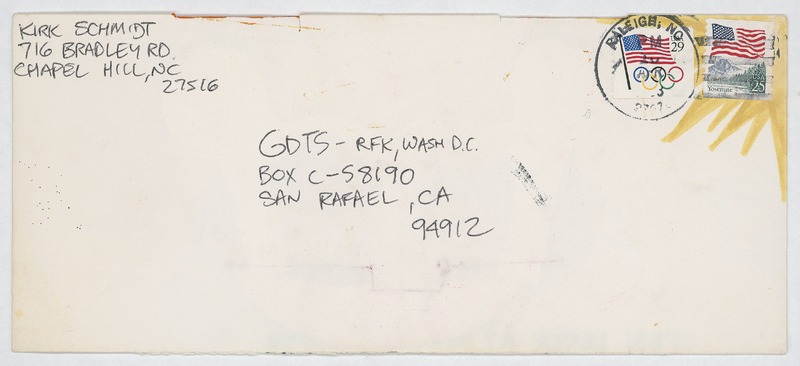 KIRK SCHMIDT
716 BRADLEY RD.
CHAPEL HILL, NC
27516
RALEIGH, NC
PM
USA
29
Yosemite
USA
25
GDTS - RFK, WASH D.C.
BOX C-58190
SAN RAFAEL, CA
94912